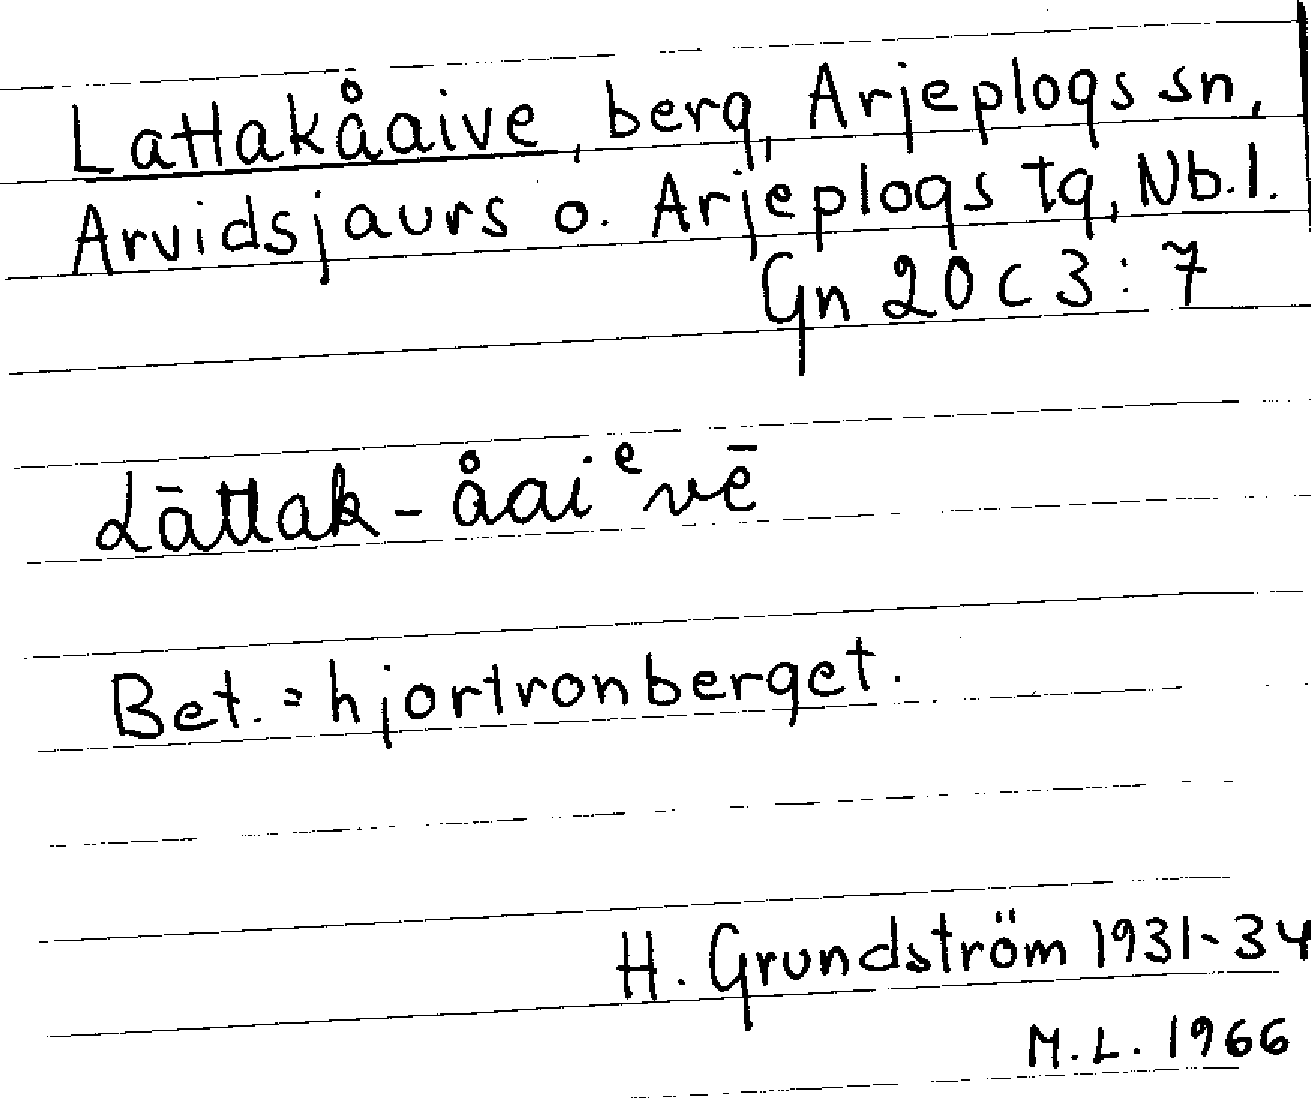 Lattakåaive, berg, Arjeplogs sn,
Arvidsjaurs o. Arjeplogs tg, Nb.l.
Gn 20 c 3 : 7
Láttak - åaiᵉvē
Bet. = hjortronberget.
H. Grundström 1931-34
M.L. 1966